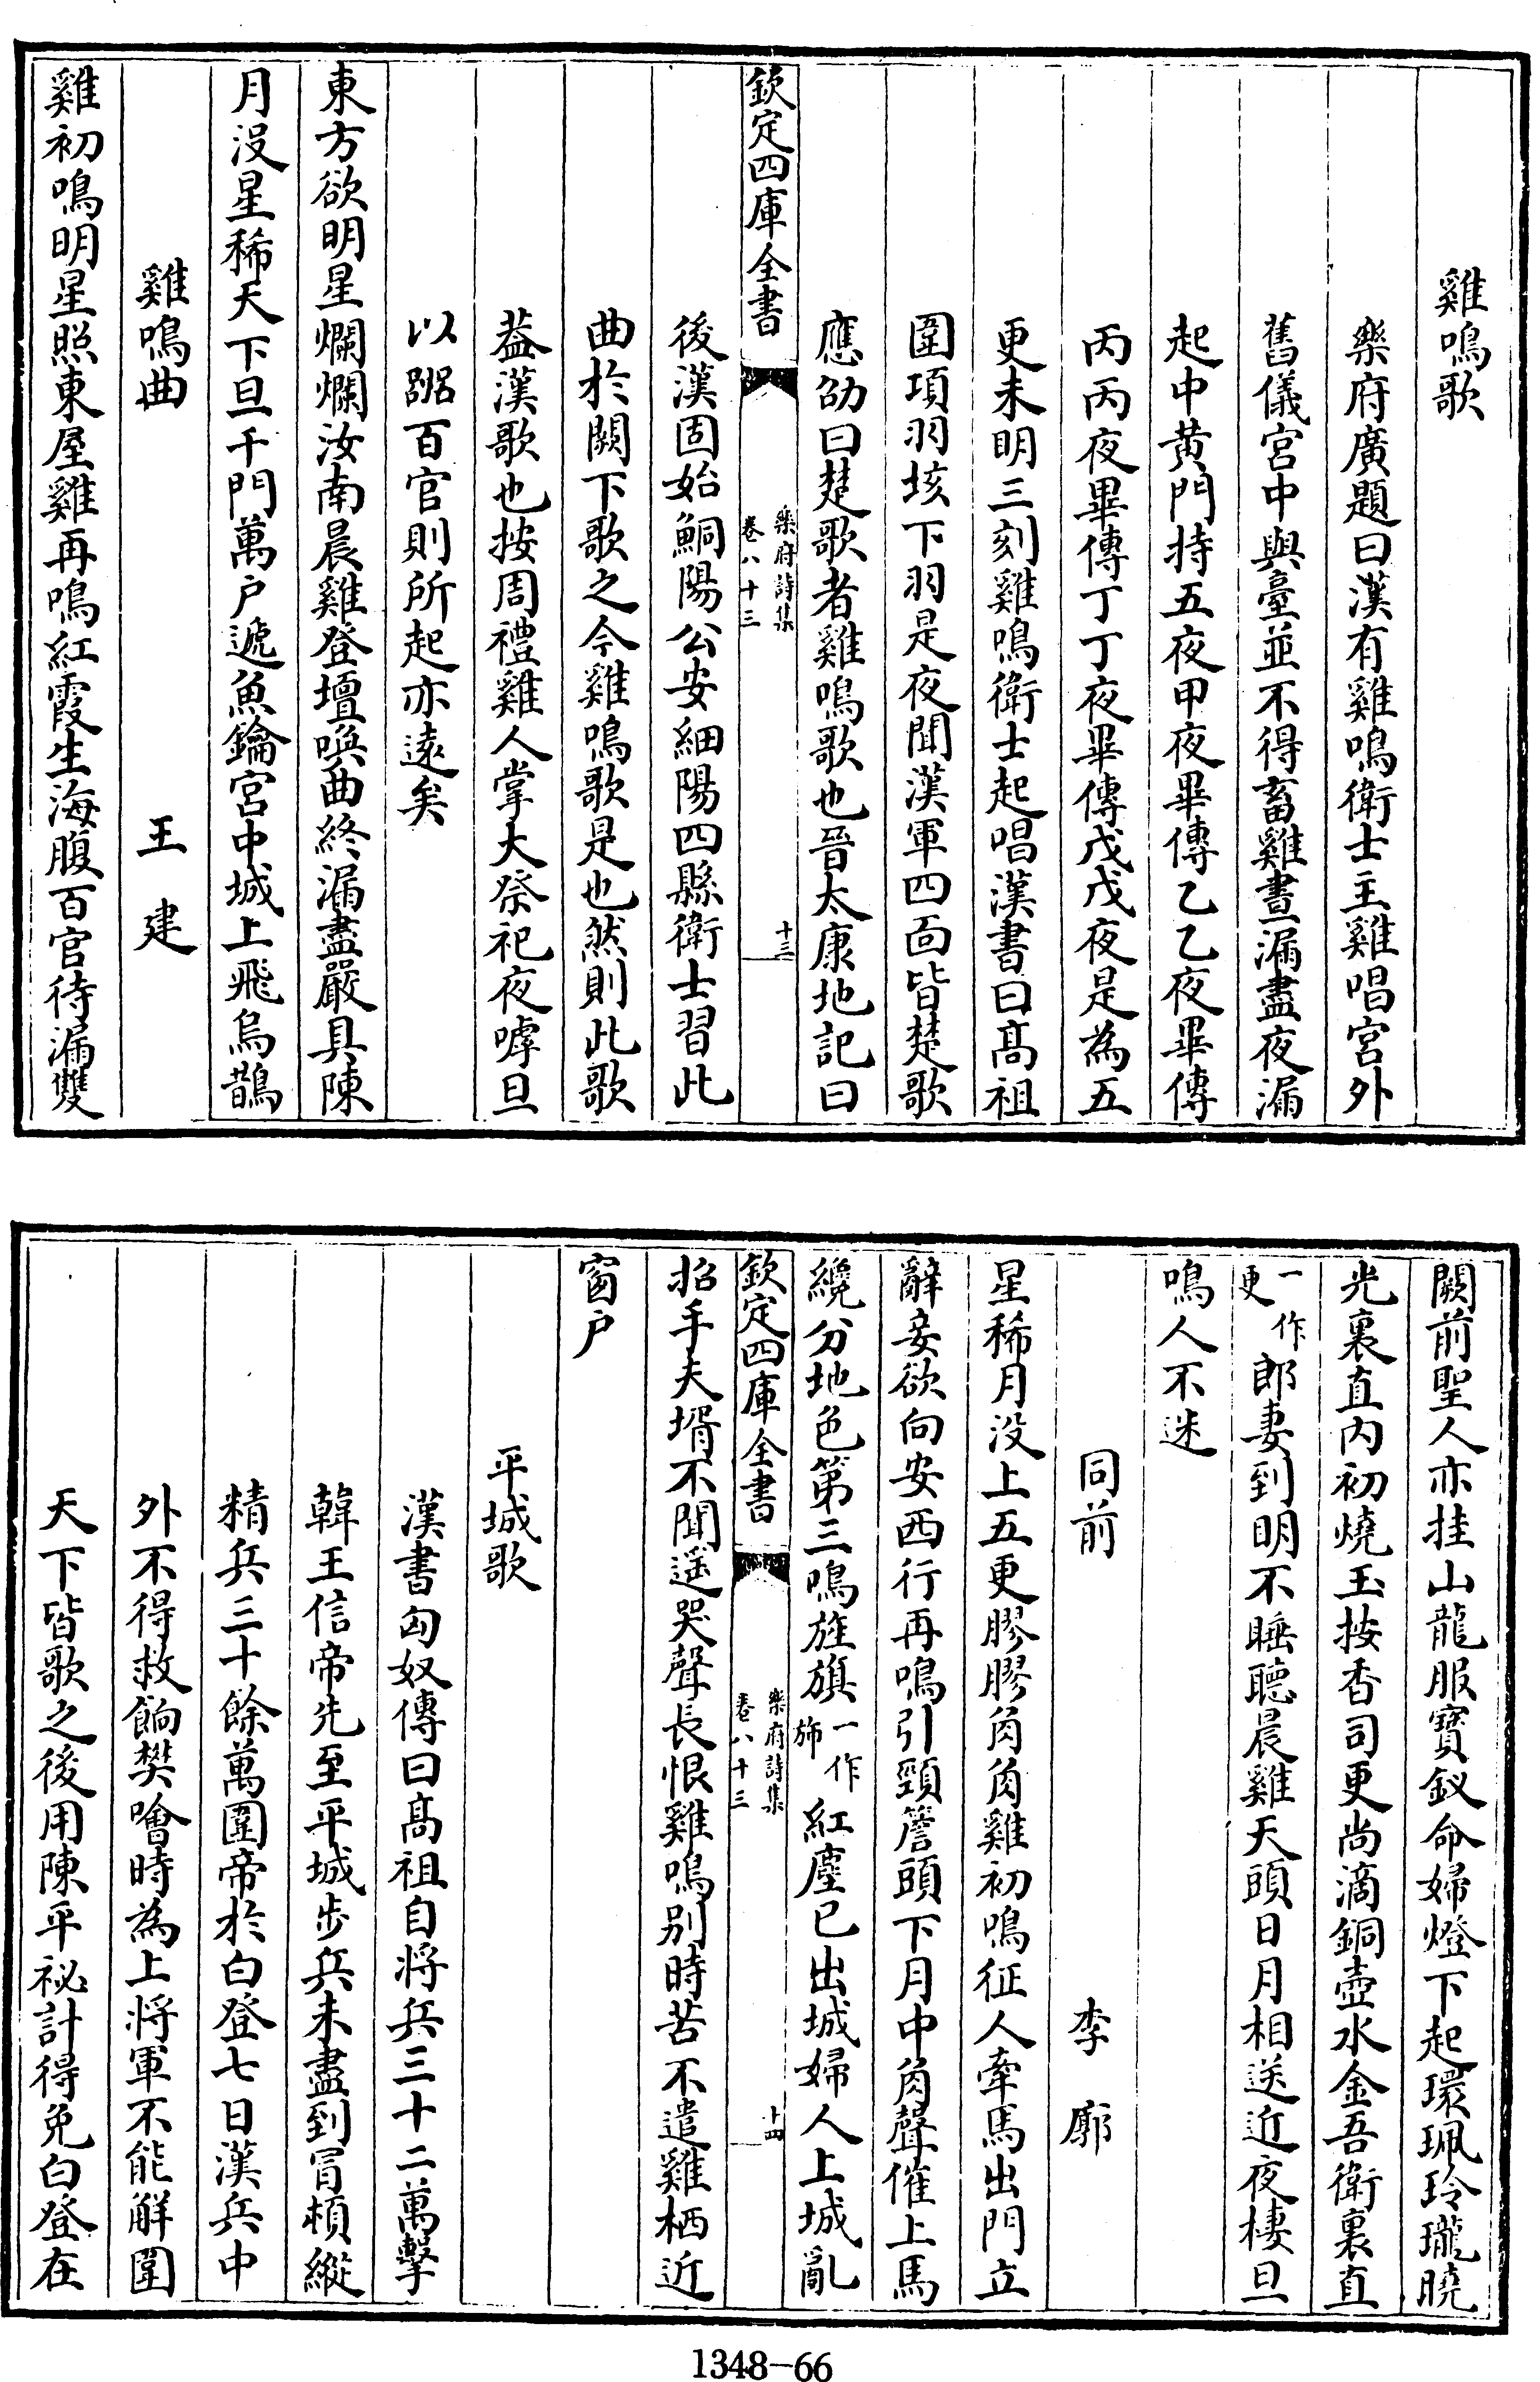 雞鳴歌
樂府廣題曰漢有雞鳴衛士主雞唱宮外
舊儀宮中與臺並不得畜雞晝漏盡夜漏
起中黄門持五夜甲夜畢傳乙乙夜畢傳
丙丙夜畢傳丁丁夜畢傳戊戊夜是為五
更未明三刻雞鳴衛士起唱漢書曰髙祖
圍項羽垓下羽是夜聞漢軍四面皆楚歌
應劭曰楚歌者雞鳴歌也晉太康地記曰
欽定四庫全書
樂府詩集
卷八十三
十三
後漢固始鮦陽公安細陽四縣衛士習此
曲於闕下歌之今雞鳴歌是也然則此歌
葢漢歌也按周禮雞人掌大祭祀夜嘑旦
以嘂百官則所起亦遠矣
東方欲明星爛爛汝南晨雞登壇喚曲終漏盡嚴具陳
月没星稀天下旦千門萬户遞魚鑰宮中城上飛烏鵲
雞鳴曲
王建
雞初鳴明星照東屋雞再鳴紅霞生海腹百官待漏雙
闕前聖人亦挂山龍服寳釵命婦燈下起環珮玲瓏曉
光裏直内初燒玉按香司更尚滴銅壺水金吾衛裏直
一作更郎妻到明不睡聽晨雞天頭日月相送近夜棲旦
鳴人不迷
同前
李廓
星稀月没上五更膠膠角角雞初鳴征人牽馬出門立
辭妾欲向安西行再鳴引頸簷頭下月中角聲催上馬
纔分地色第三鳴旌旗一作斾紅塵已出城婦人上城亂
欽定四庫全書
樂府詩集
卷八十三
十四
招手夫壻不聞遥哭聲長恨雞鳴别時苦不遣雞栖近
窗户
平城歌
漢書匈奴傳曰髙祖自將兵三十二萬擊
韓王信帝先至平城步兵未盡到冒頓縱
精兵三十餘萬圍帝於白登七日漢兵中
外不得救餉樊噲時為上將軍不能解圍
天下皆歌之後用陳平祕計得免白登在
1348-66